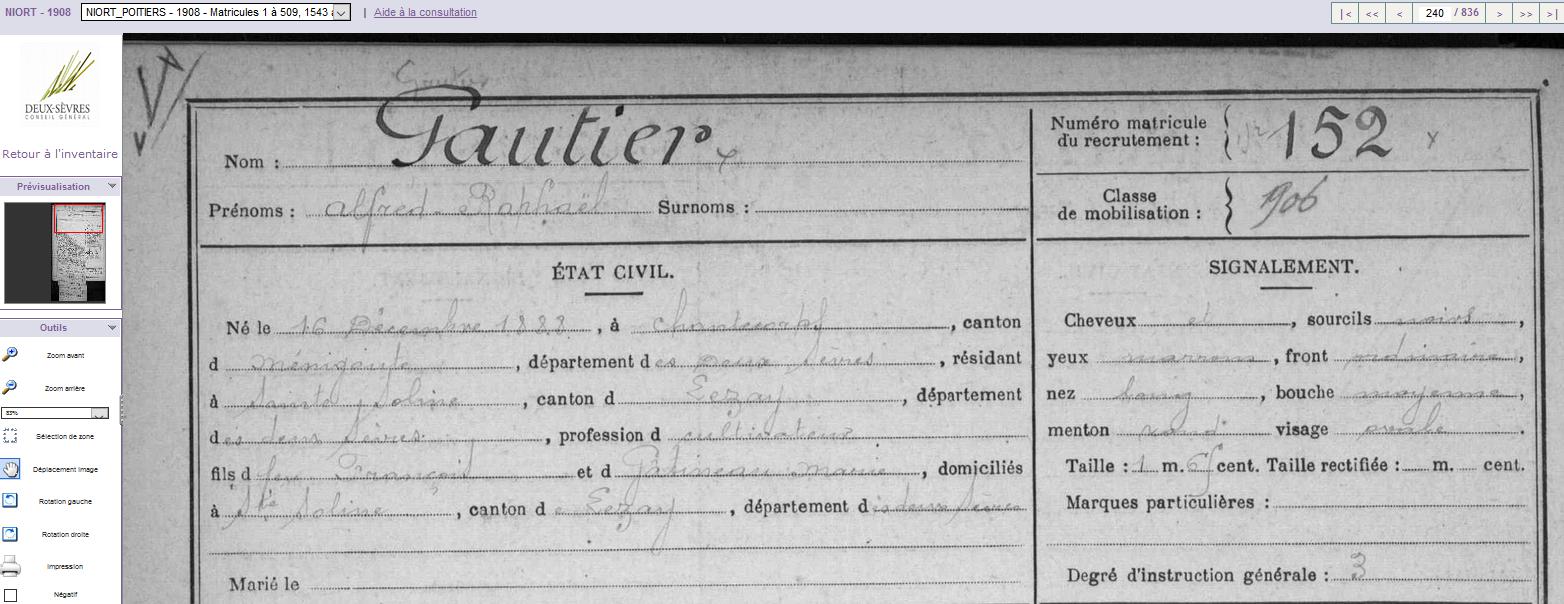 NIORT - 1908
NIORT_POITIERS - 1908 - Matricules 1 à 509, 1543
| Aide à la consultation
|< << < 240 / 836 > >> >|
DEUX-SÈVRES
CONSEIL GÉNÉRAL
Retour à l'inventaire
Prévisualisation
Outils
Zoom avant
Zoom arrière
83%
Sélection de zone
Déplacement image
Rotation gauche
Rotation droite
Impression
Négatif
Gautier
Nom : Gautier
Prénoms : Alfred Raphaël Surnoms :
Numéro matricule
du recrutement : 152
Classe
de mobilisation : 1906
ÉTAT CIVIL.
Né le 16 Décembre 1888, à , canton
d Ménigoute, département des Deux Sèvres, résidant
à Sainte Soline, canton d Lezay, département
des deux Sèvres, profession d cultivateur
fils d François et d Gâtineau Marie, domiciliés
à Ste Soline, canton de Lezay, département des deux Sèvres
Marié le
SIGNALEMENT.
Cheveux et, sourcils noirs,
yeux marrons, front ordinaire,
nez long, bouche moyenne,
menton rond visage ovale.
Taille : 1 m. cent. Taille rectifiée : m. cent.
Marques particulières :
Degré d'instruction générale : 3